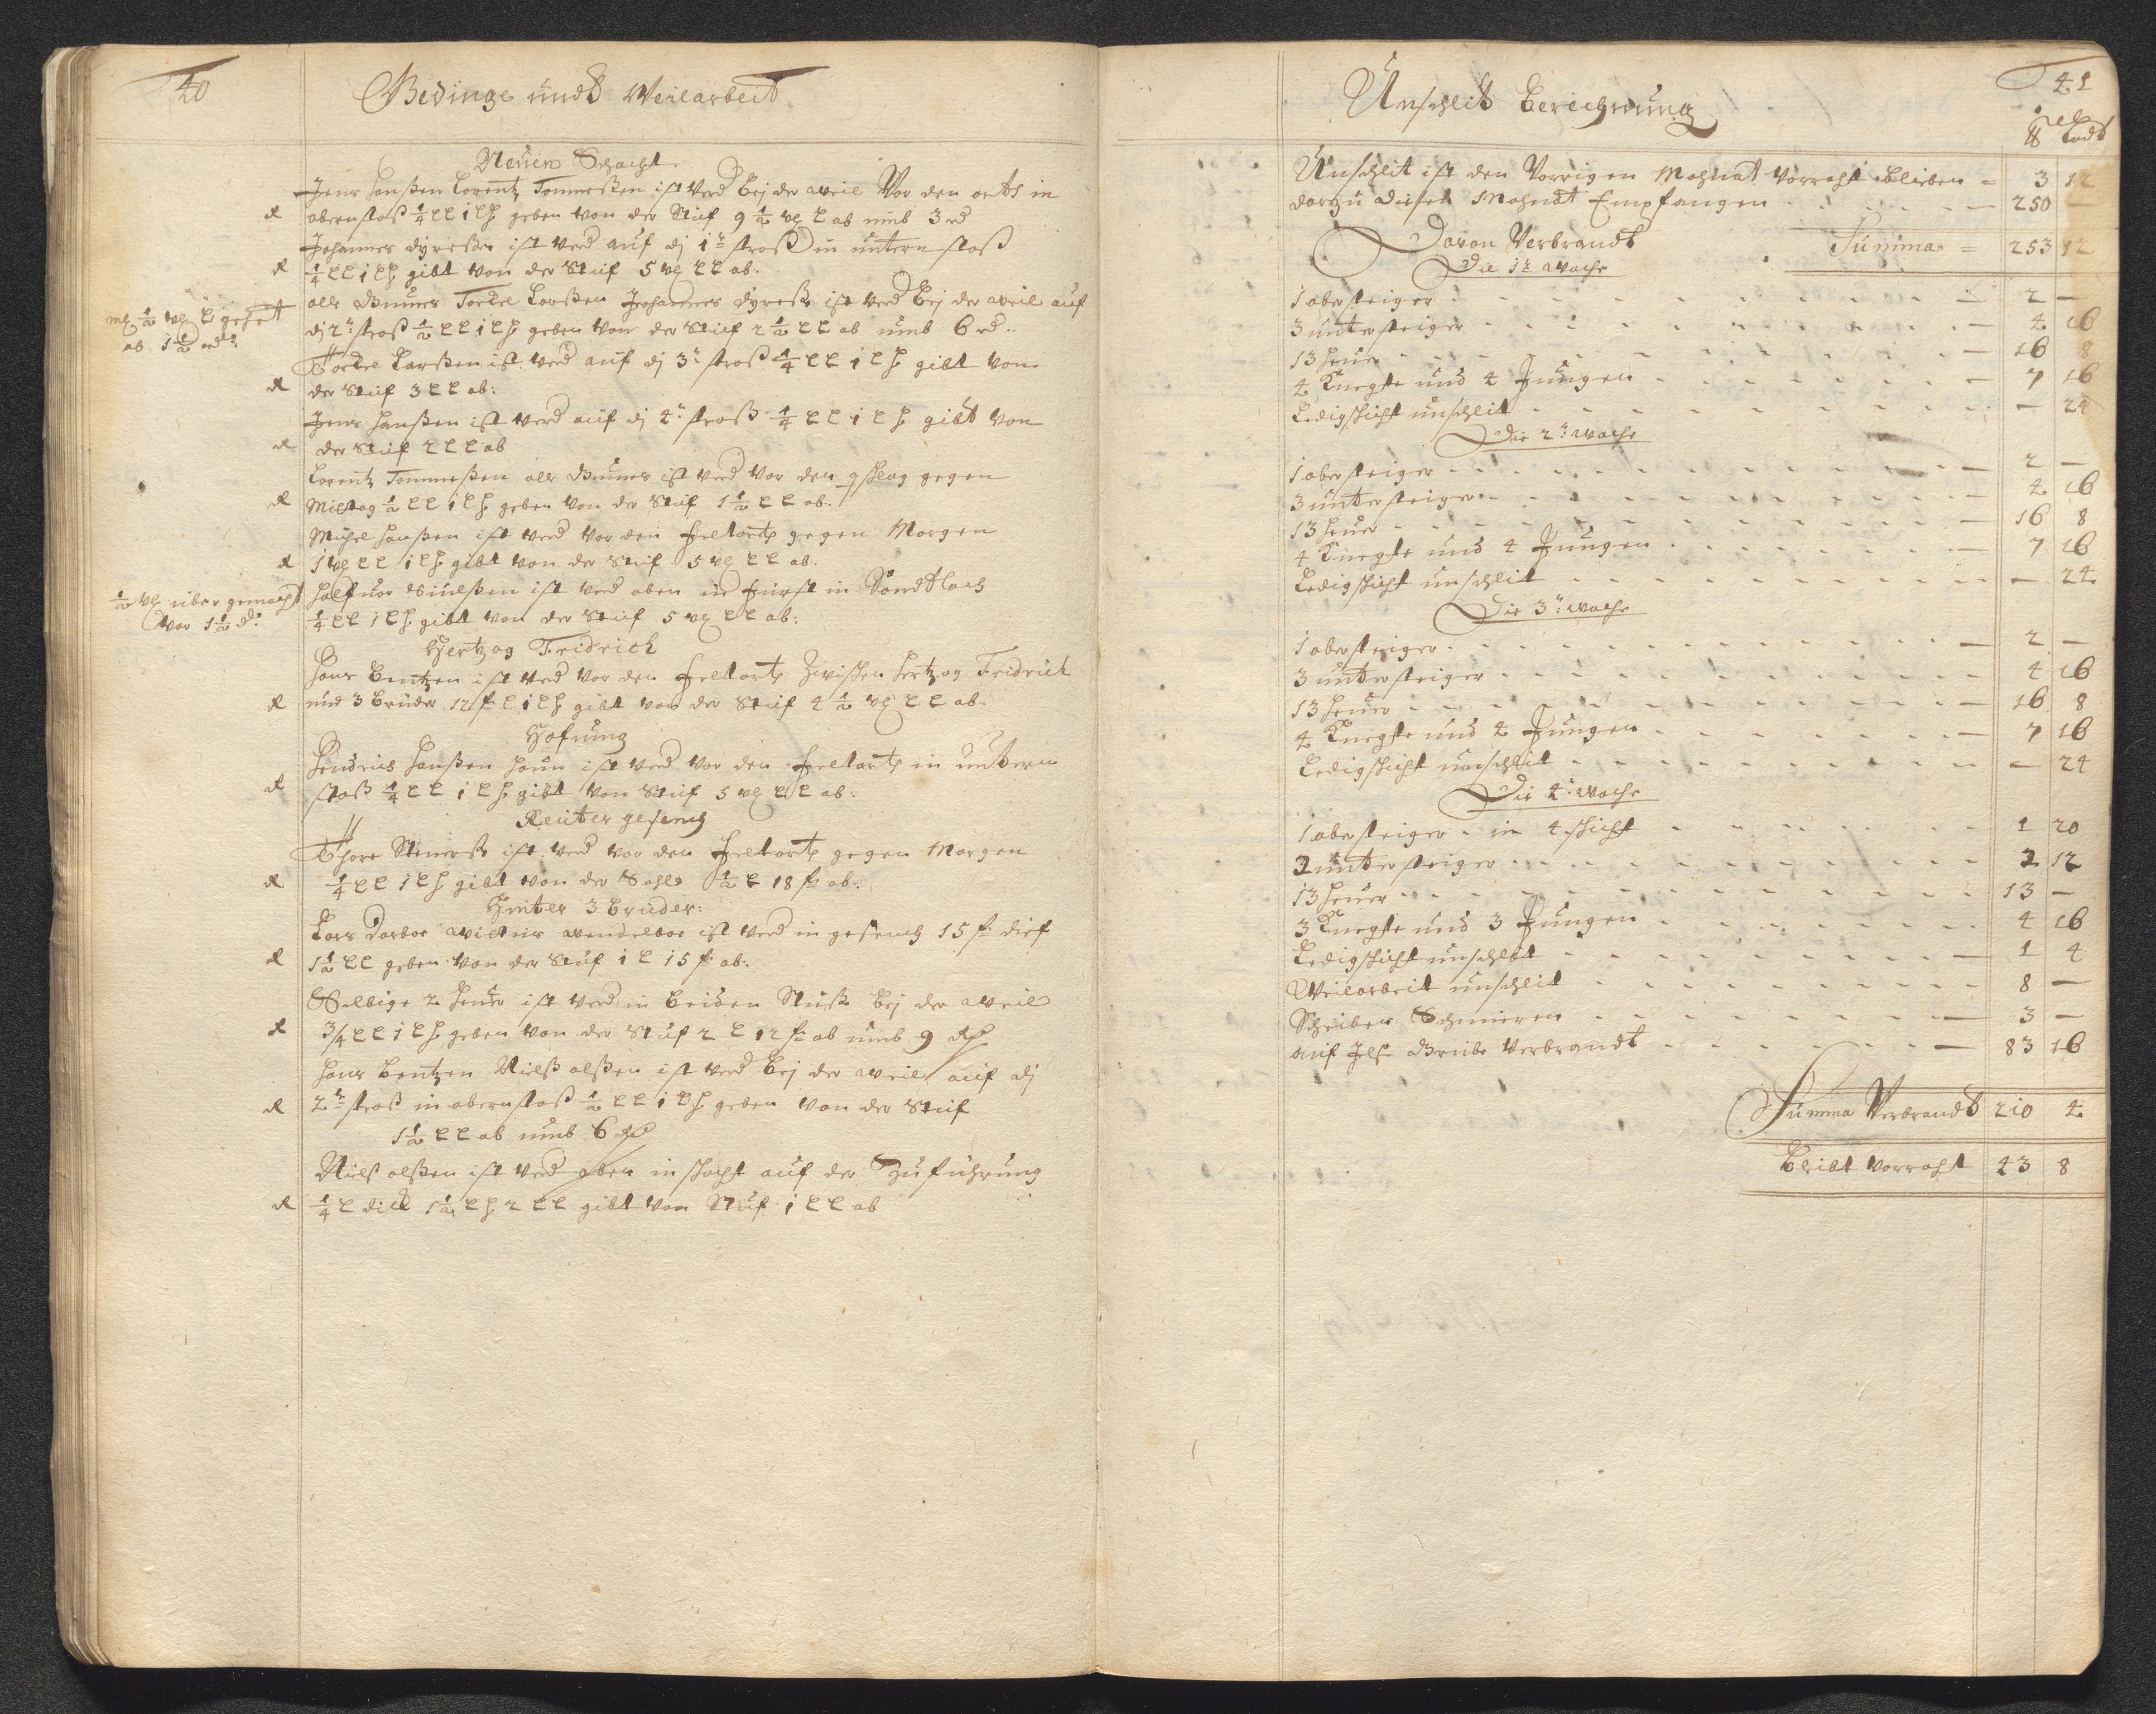 40
Bedinge undt Weilarbeit
Neuen Schacht
Jens Hanßen Lorentz Tommeßen ist Verd bej der Weil Vor den orts in
R obern stoß 1/4 LL 1 LH geben von der Stuf 9 1/2 vg L ab umb 3 rd
Johannes dyreßen ist Verd auf dj 1te stroß in untern stoß
R 1/4 LL 1 LH gibt von der Stuf 5 vg LL ab:
olle Gunners Torkel Larßen Johannes dyreßen ist Verd bej der Weil auf
1/2 vg L
ab 1 1/2 rd:
dj 2te stroß 1/2 LL 1 LH geben von der Stuf 2 1/2 LL ab umb 6 rd:
Torkel Larßen ist Verd auf dj 3te stroß 1/4 LL 1 LH gibt von
R der Stuf 3 LL ab:
Jens Hanßen ist Verd auf dj 4te stroß 1/4 LL 1 LH gibt von
R der Stuf 2 LL ab
Lorentz Tommeßen olle Gunners ist Verd vor den qschlag gegen
R Mittag 1/2 LL 1 LH geben von der Stuf 1 1/2 LL ab:
Michel Hanßen ist Verd vor den feltorts gegen Morgen
R 1 vg LL 1 LH gibt von der Stuf 5 vg LL ab:
1/2 vg über gemacht
vor 1 1/2 d:
Halfuor ist Verd oben in
1/4 LL 1 LH gibt von der Stuf 5 vg LL ab:
Hertzog Fridrich
Hans Bentzen ist Verd vor den feltorts zwischen Hertzog Fridrich
R und 3 Brüder 12 f L 1 LH gibt von der Stuf 4 1/2 vg LL ab:
Hofnung
Hendrics Hanßen ist Verd vor den feltorts in untern
R stoß 1/4 LL 1 LH gibt von Stuf 5 vg LL ab:
Reuter gesenck
Thore ist Verd vor den feltorts gegen Morgen
R 1/4 LL 1 LH gibt von der Sohle 1/2 L 18 f ab:
Hinter 3 Brüder:
Lars ist Verd in gesenck 15 f dief
R 1 1/2 LL geben von der Stuf 1 L 15 f ab:
Selbige 2 Heuer ist Verd in beiden bej der Weil
R 3/4 LL 1 LH geben von der Stuf 2 L 12 f ab umb 9 rd
Hans Bentzen Nielß olßen ist Verd bej der Weil auf dj
R 2te stroß in obern stoß 1/2 LL 1 LH geben von der Stuf
1 1/2 LL ab umb 6 rd
Niels olßen ist Verd oben in schacht auf der Zuführung
R 1/4 L dick 1 1/2 LH 2 LL gibt von Stuf 1 LL ab
41
Unschlit Berechnung
℔ Lodt
Unschlit ist den Vorrigen Mohnat Vorraht blieben - 3 12
darzu diesen Mohndt Empfangen - 250 —
Summa - 253 12
Davon Verbrandt
Die 1te Woche
1 obersteiger - 2 —
3 untersteiger - 4 16
13 Heuer - 16 8
4 Knegte und 4 Jungen - 7 16
Ledigschicht unschlit - — 24
Die 2te Woche
1 obersteiger - 2 —
3 untersteiger - 4 16
13 Heuer - 16 8
4 Knegte und 4 Jungen - 7 16
Ledigschicht unschlit - — 24
Die 3te Woche
1 obersteiger - 2 —
3 untersteiger - 4 16
13 Heuer - 16 8
4 Knegte und 4 Jungen - 7 16
Ledigschicht unschlit - — 24
Die 4te Woche
1 obersteiger - in 4 schicht - 1 20
2 untersteiger - 2 12
13 Heuer - 13 —
3 Knegte und 3 Jungen - 4 16
Ledigschicht unschlit - 1 4
Weilarbeit unschlit - 8 —
Scheiben Schmieren - 3 —
auf Grube Verbrandt - 83 16
Summa Verbrandt 210 4
Bleibt Vorraht 43 8